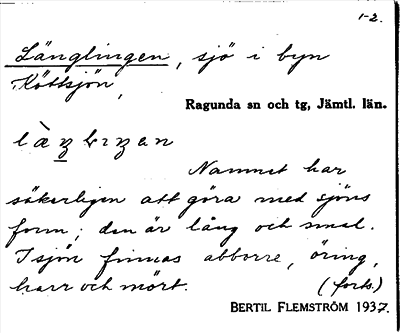 1-2.
Länglingen, sjö i byn
Köttsjön,
Ragunda sn och tg, Jämtl. län.
Namnet har
säkerligen att göra med sjöns
form; den är lång och smal.
I sjön finnas abborre, öring,
harr och mört. (forts.)
BERTIL FLEMSTRÖM 1937.